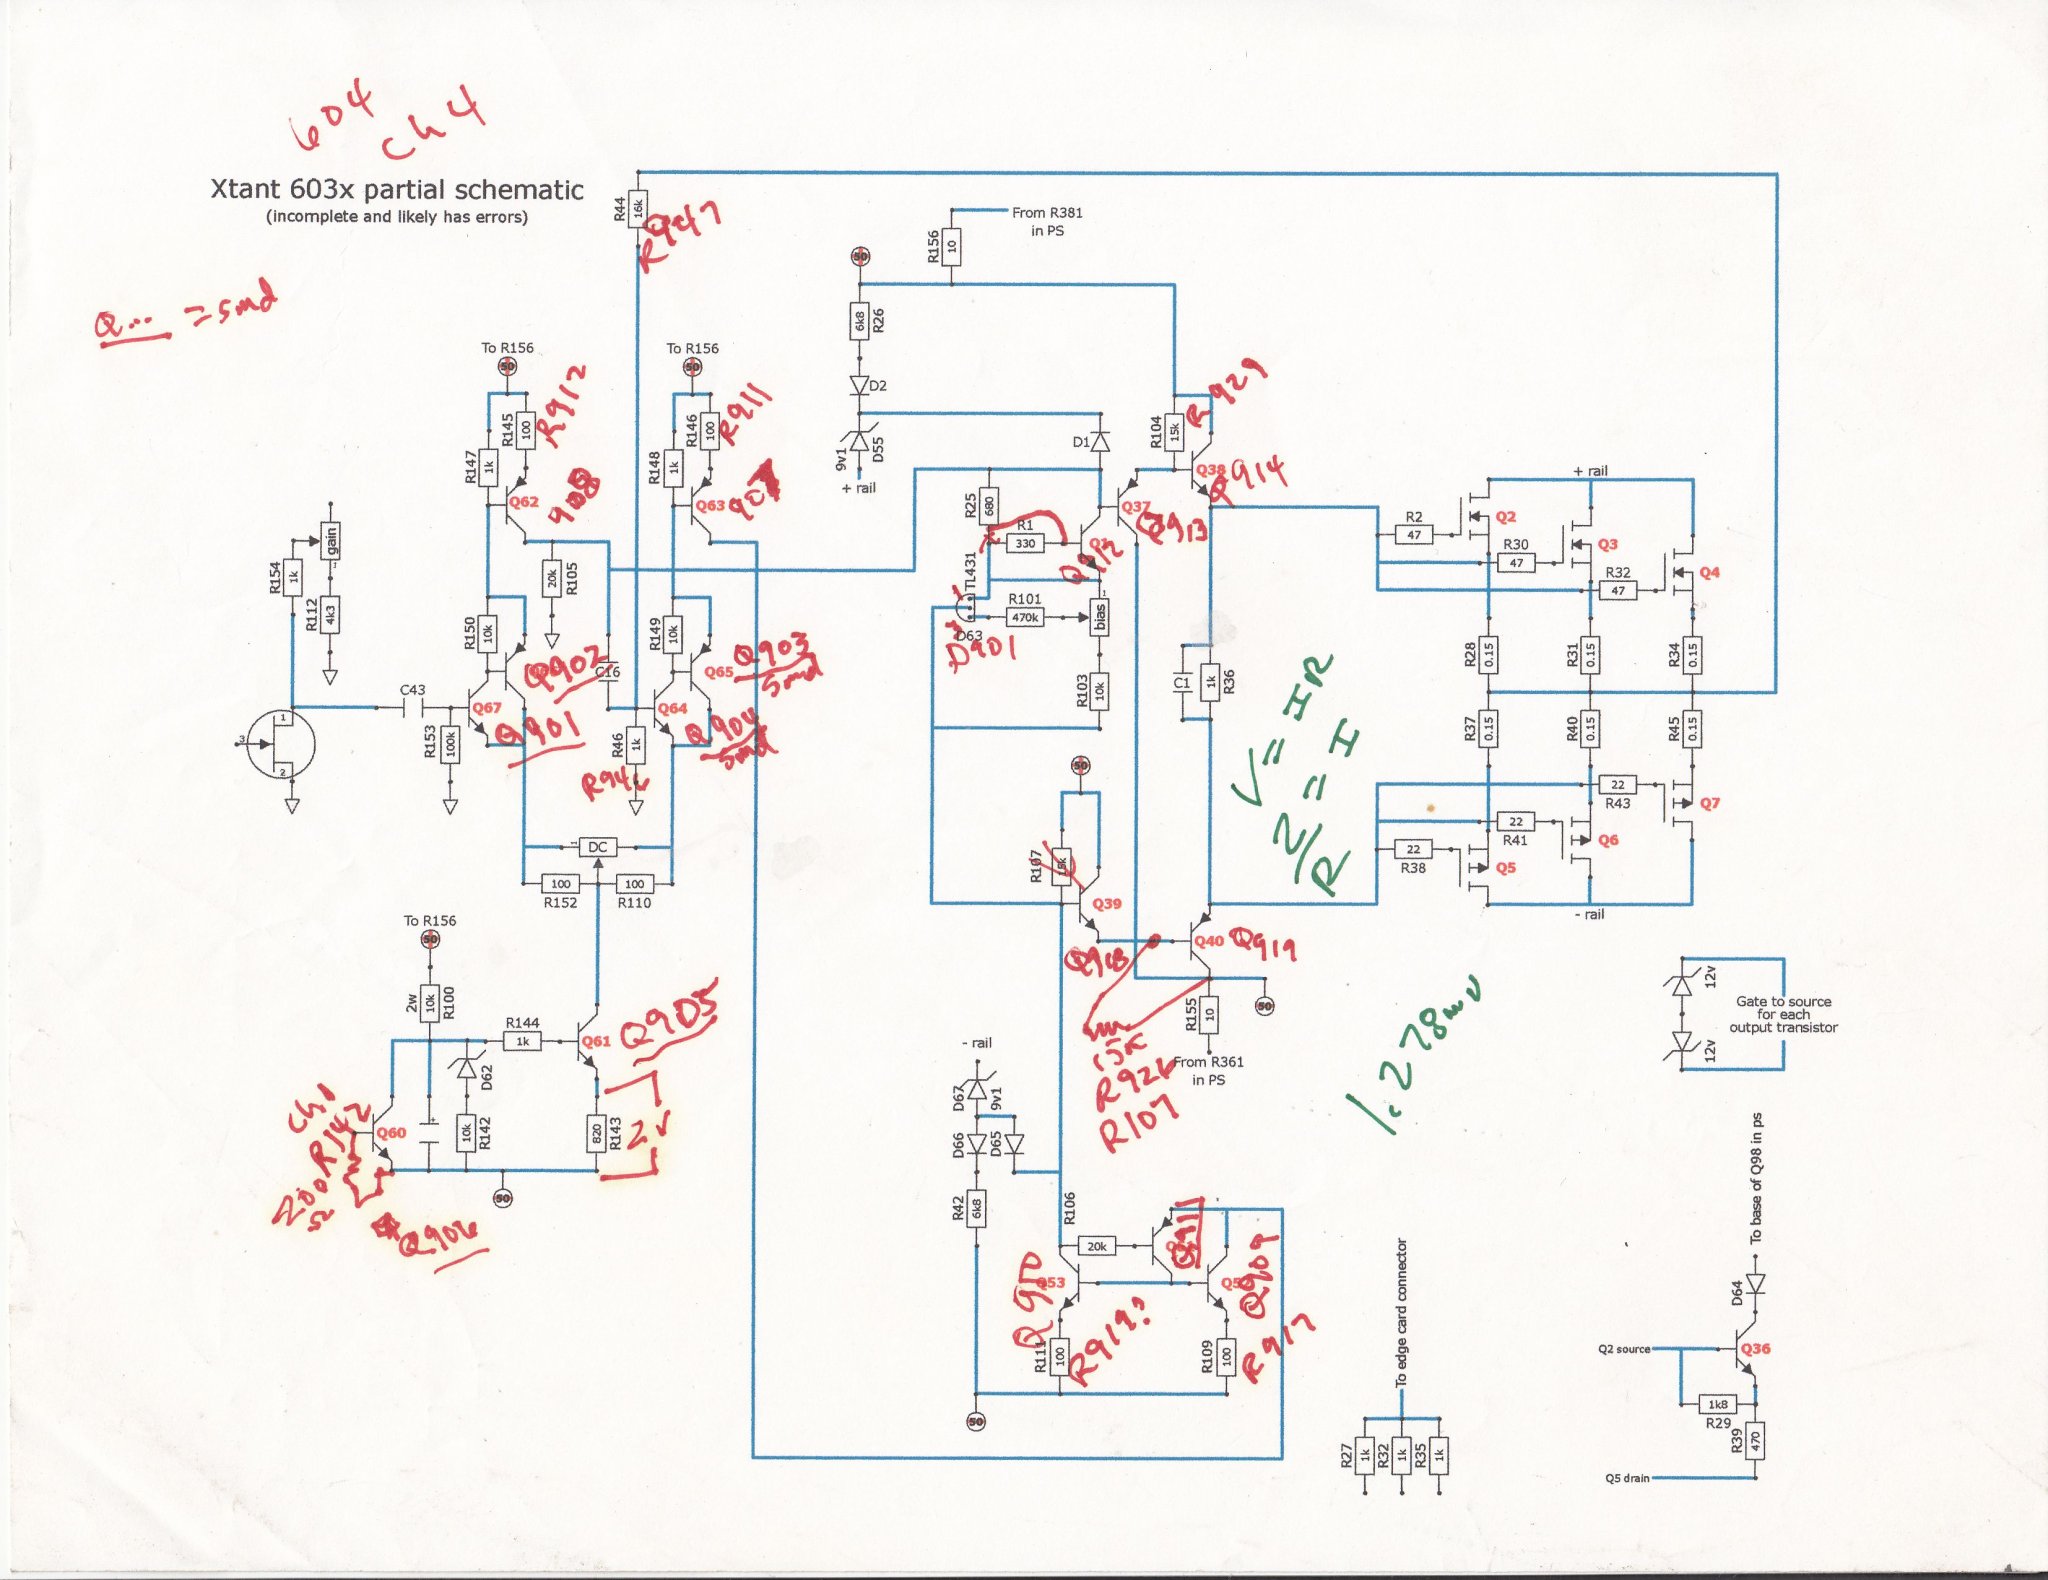 604
ch4
Xtant 603x partial schematic
(incomplete and likely has errors)
Q... = smd
R44
16k
R947
R156
10
From R381
in PS
50
6k8
R26
D2
9v1
D55
+ rail
D1
R104
15k
R929
Q38
Q914
To R156
50
R145
100
R912
R147
1k
Q62
908
To R156
50
R146
100
R911
R148
1k
Q63
907
R25
680
R1
330
Q37
Q913
Q912
TL431
1
3
D63
D901
R101
470k
bias
1
R103
10k
R105
20k
gain
1
R154
1k
R112
4k3
C43
R153
100k
1
2
3
R150
10k
Q902
Q67
Q901
C16
R149
10k
Q65
Q903
smd
Q64
Q904
smd
R46
1k
R946
DC
1
100
R152
100
R110
C1
R36
1k
V = IR
2/R = I
1.278mv
+ rail
R2
47
Q2
R30
47
Q3
R32
47
Q4
R28
0.15
R31
0.15
R34
0.15
R37
0.15
R40
0.15
R45
0.15
22
R43
Q7
22
R41
Q6
22
R38
Q5
- rail
50
R107
Q39
Q918
Q40
Q919
R155
10
50
From R361
in PS
15k
R926
R107
To R156
50
2w
10k
R100
R144
1k
Q61
Q905
D62
Q60
10k
R142
820
R143
2v
50
Ch1
R142
200
Ω
Q906
- rail
D67
9v1
D66
D65
R42
6k8
R106
20k
Q911
Q53
Q910
Q909
R111
100
R919?
R109
100
R917
50
12v
12v
Gate to source
for each
output transistor
To edge card connector
R27
1k
R32
1k
R35
1k
To base of Q98 in ps
D64
Q2 source
Q36
1k8
R29
R39
470
Q5 drain